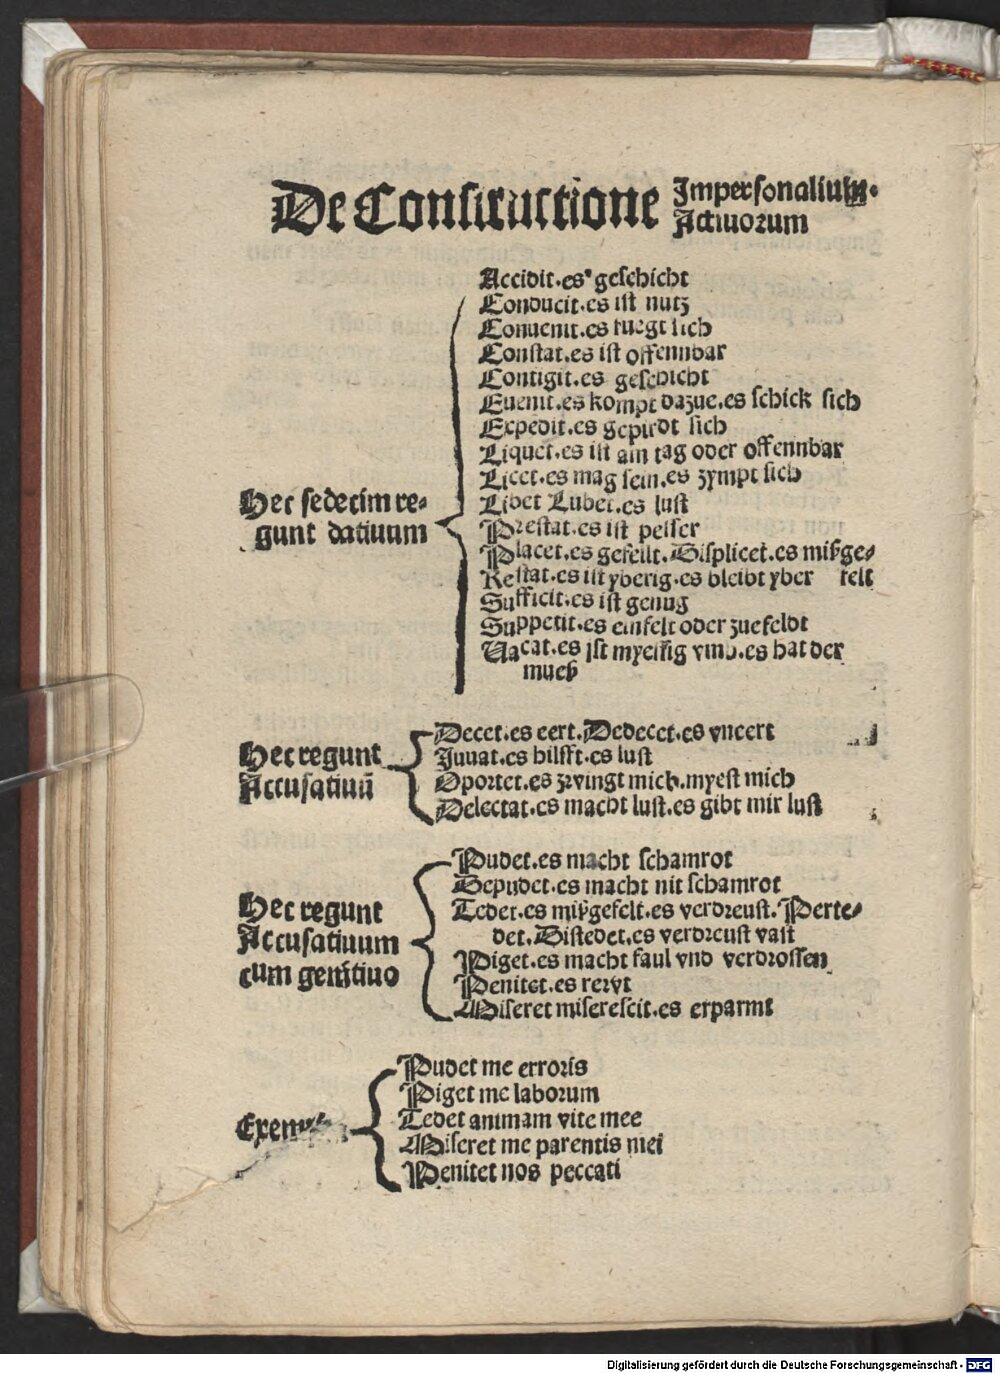 De Constructione Impersonalium.
Actiuorum
Accidit.es geschicht
Conducit.es ist nutz
Conuenit.es fuegt sich
Constat.es ist offennbar
Contigit.es geschicht
Euenit.es kompt dazue.es schick sich
Expedit.es gepurdt sich
Liquet.es ist ain tag oder offennbar
Licet.es mag sein.es zympt sich
Libet Lubet.es lust
Hec sedecim re-
gunt datiuum
Prestat.es ist pesser
Placet.es gefellt.Displicet.es mißge-
Restat.es ist yberig.es bleibt yber felt
Sufficit.es ist genug
Suppetit.es einfelt oder zuefeldt
Uacat.es ist myessig vnd.es hat der
mueß
Hec regunt
Accusatiuū
Decet.es eert.Dedecet.es vneert
Iuuat.es hilfft.es lust
Oportet.es zwingt mich.myest mich
Delectat.es macht lust.es gibt mir lust
Hec regunt
Accusatiuum
cum genitiuo
Pudet.es macht schamrot
Depudet.es macht nit schamrot
Tedet.es mißgefelt.es verdreust.Perte-
det.Distedet.es verdreust vast
Piget.es macht faul vnd verdrossen
Penitet.es rewt
Miseret miserescit.es erparmt
Pudet me erroris
Piget me laborum
Tedet animam vite mee
Miseret me parentis mei
Penitet nos peccati
Digitalisierung gefördert durch die Deutsche Forschungsgemeinschaft - DFG